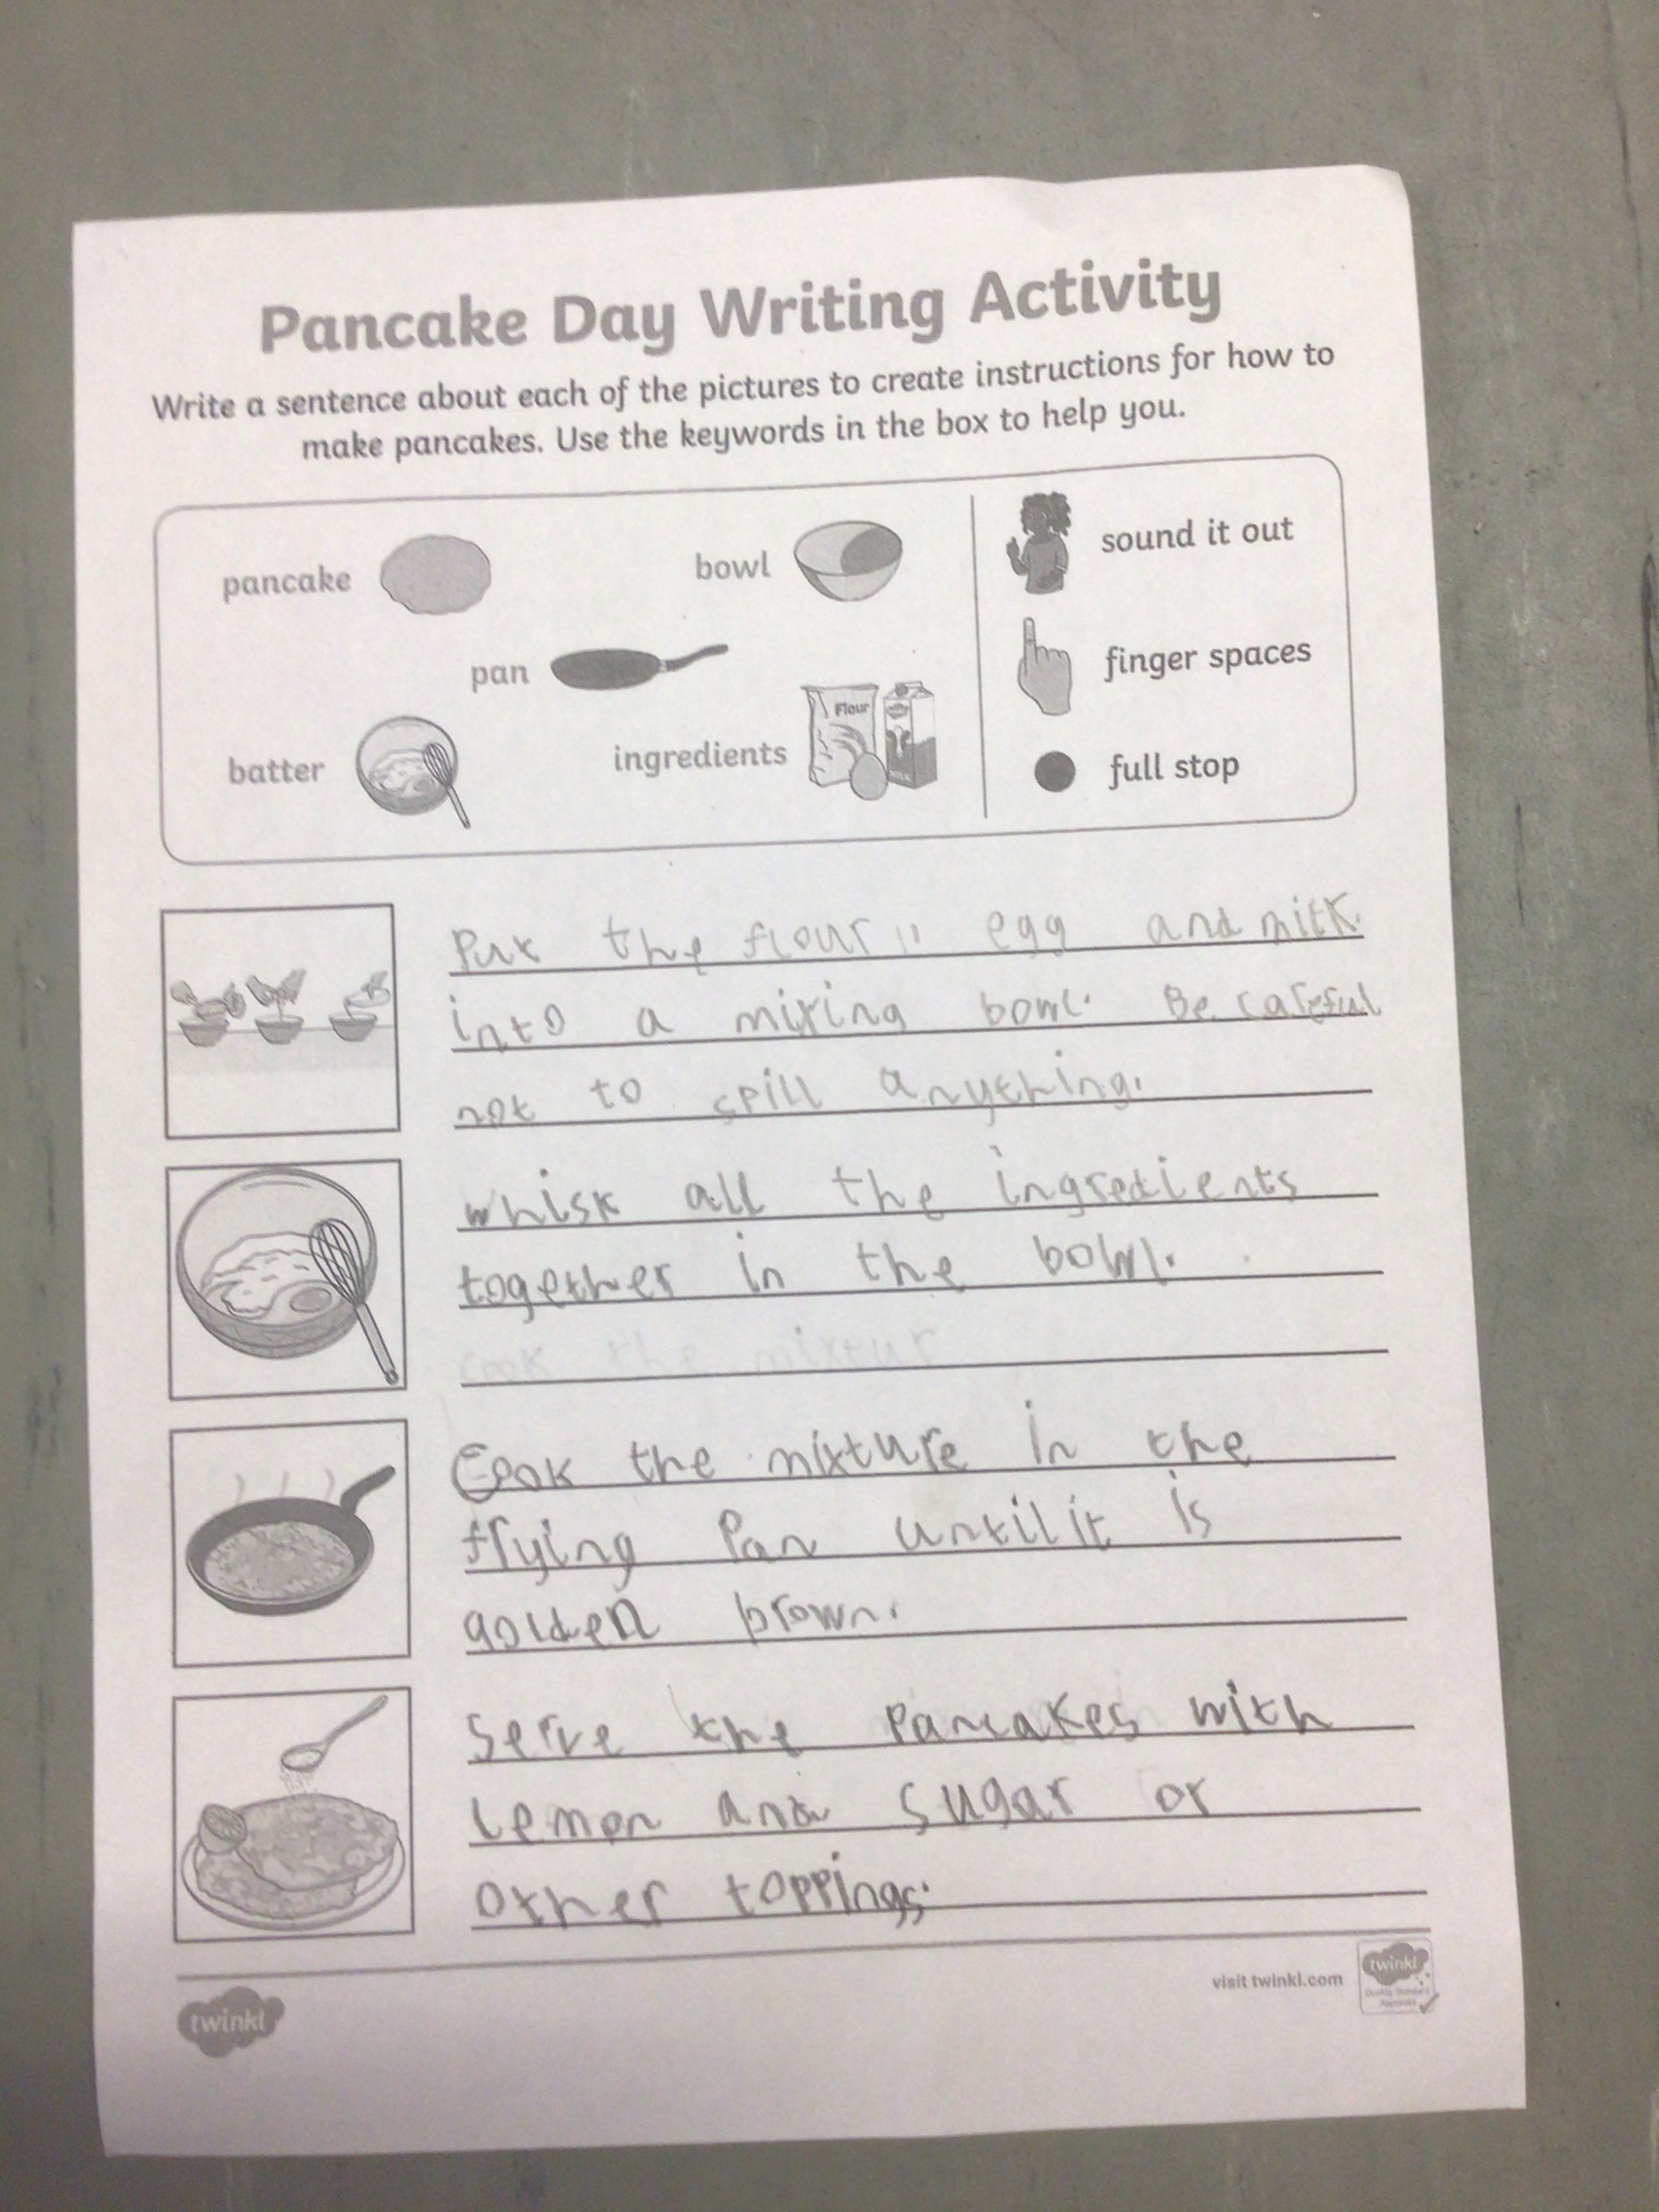 Pancake Day Writing Activity
Write a sentence about each of the pictures to create instructions for how to
make pancakes. Use the keywords in the box to help you.
pancake
bowl
sound it out
pan
finger spaces
Flour
batter
ingredients
full stop
Put the flour ,, egg and milk
into a mixing bowl. Be careful
not to spill anything.
whisk all the ingredients
together in the bowl.
cook the mixtur
Cook the mixture in the
frying Pan until it is
golden brown.
Serve the Pancakes with
lemon and sugar or
other toppings.
twinkl
visit twinkl.com
twinkl
Quality Standard
Approved